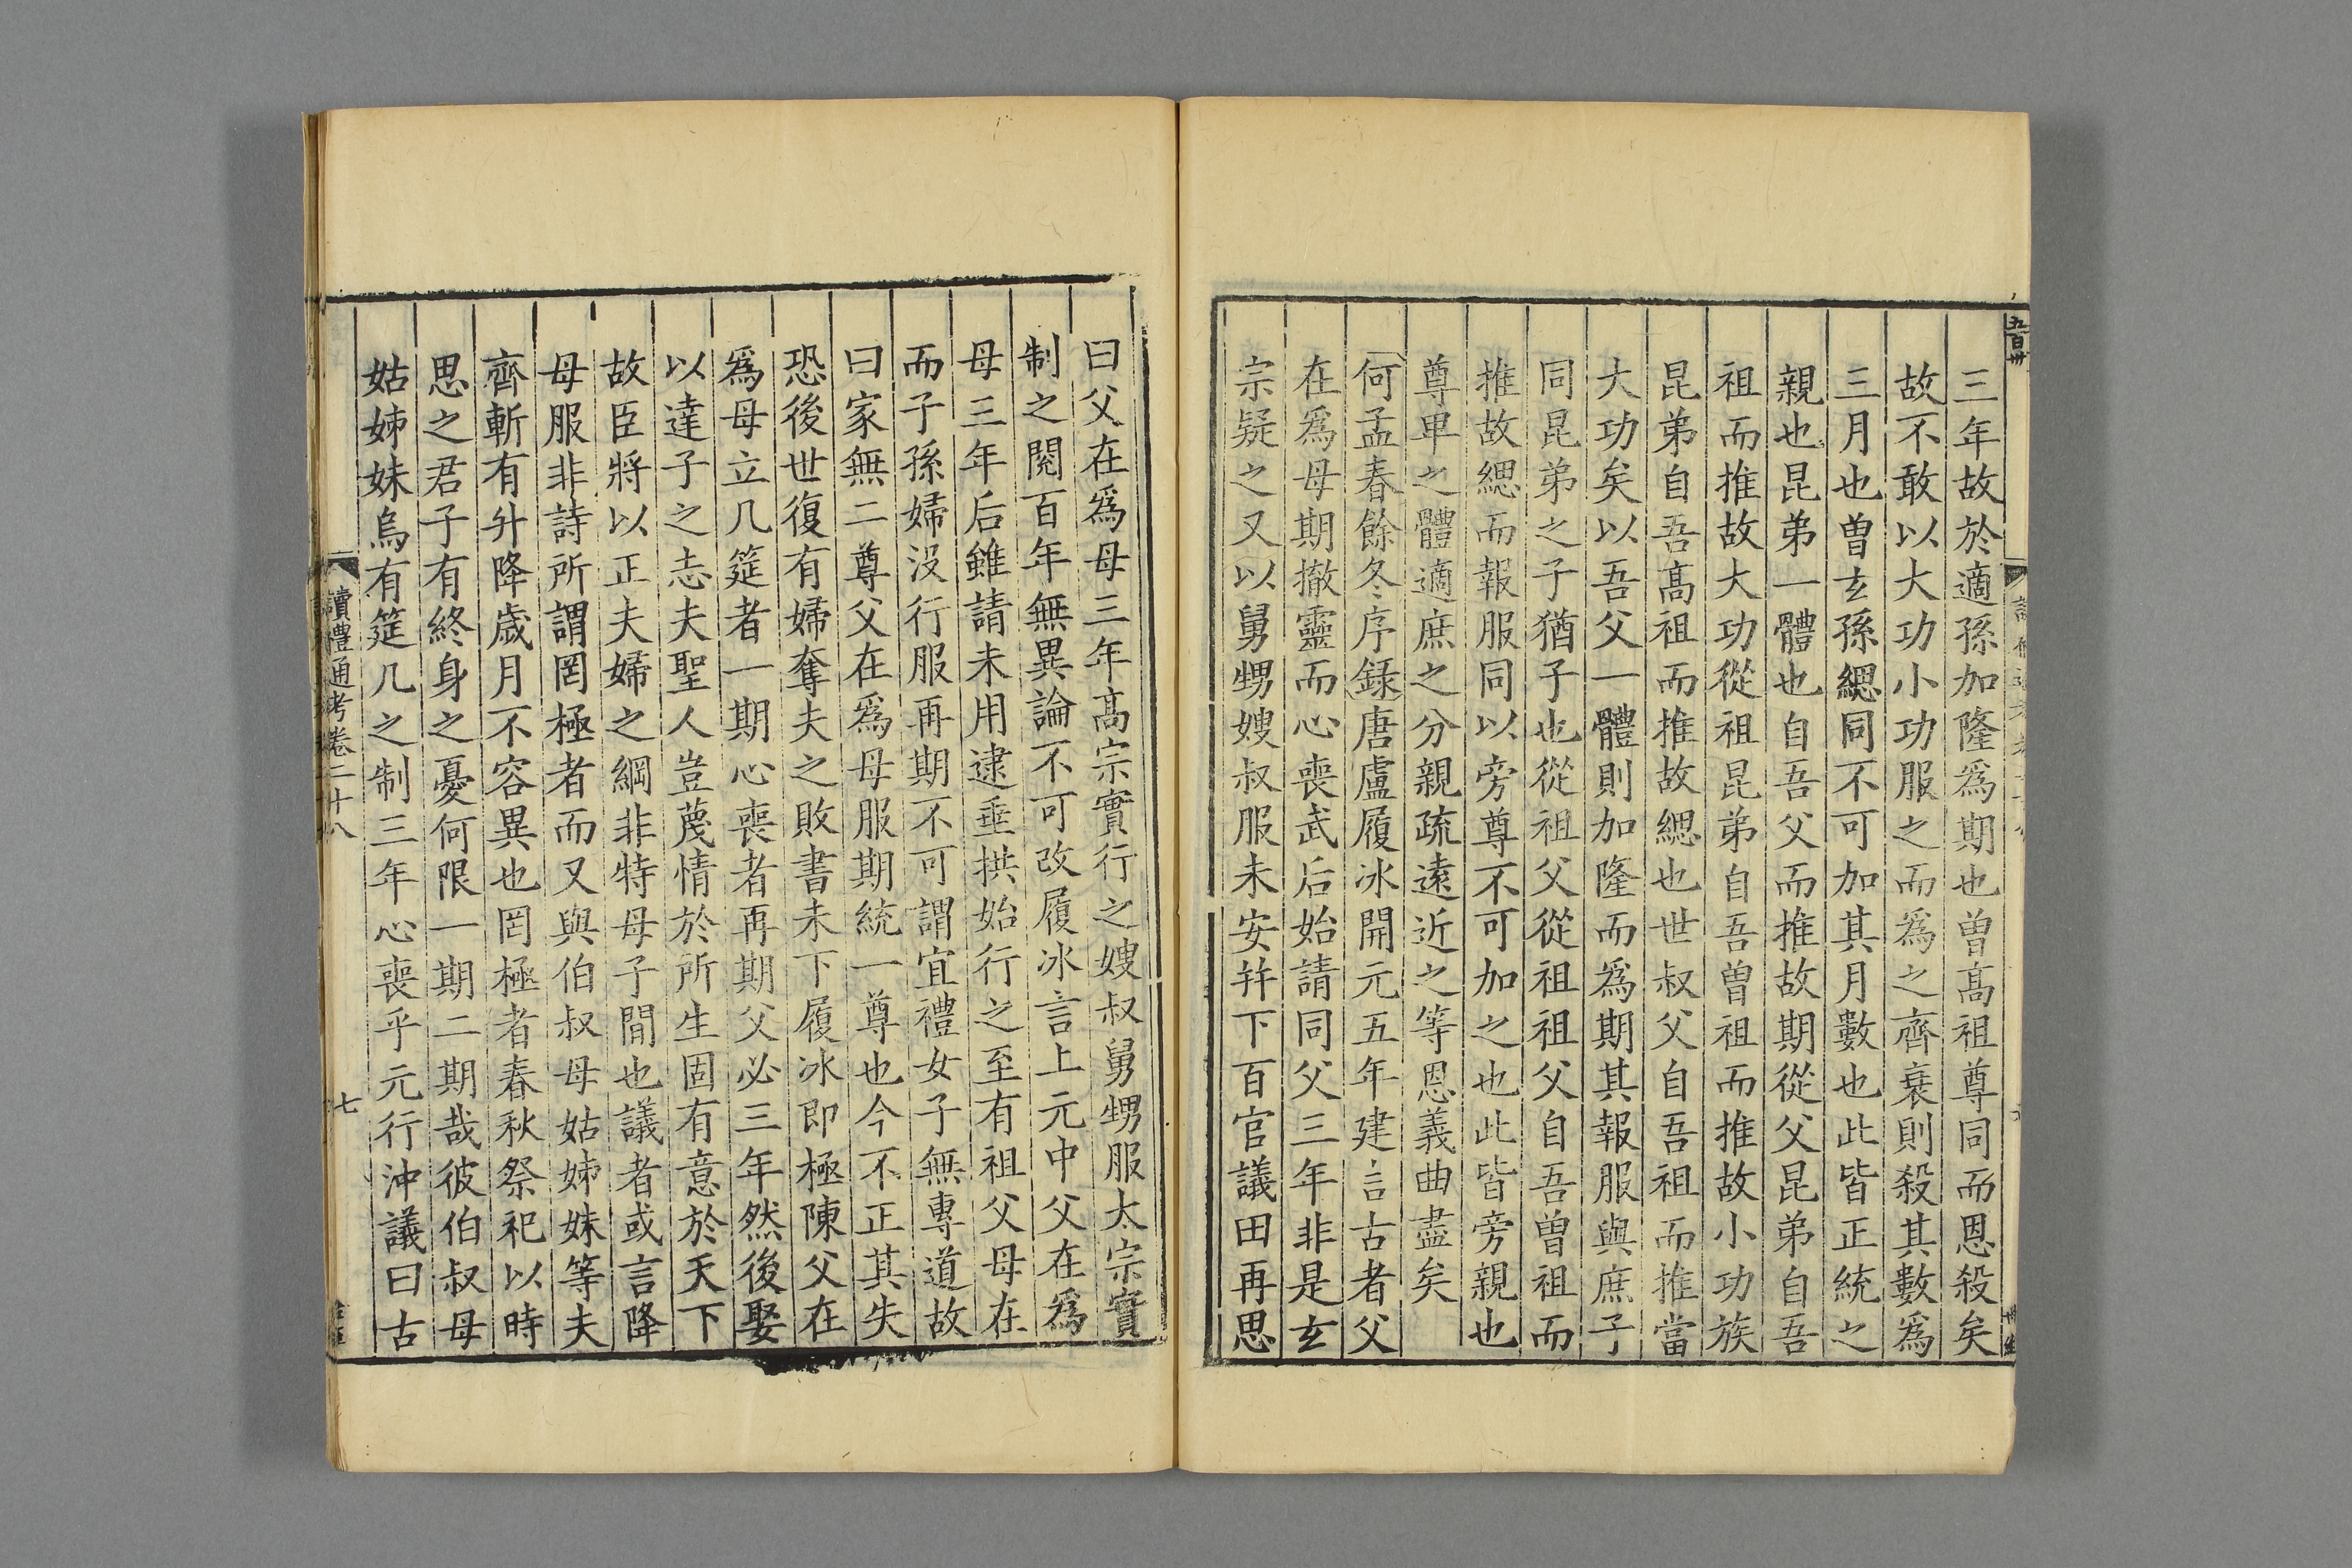 三年故於適孫加隆爲期也曾高祖尊同而恩殺矣
故不敢以大功小功服之而爲之齊衰則殺其數爲
三月也曾玄孫緦同不可加其月數也此皆正統之
親也昆弟一體也自吾父而推故期從父昆弟自吾
祖而推故大功從祖昆弟自吾曾祖而推故小功族
昆弟自吾高祖而推故緦也世叔父自吾祖而推當
大功矣以吾父一體則加隆而爲期其報服與庶子
同昆弟之子猶子也從祖父從祖祖父自吾曾祖而
推故緦而報服同以旁尊不可加之也此皆旁親也
尊畢之體適庶之分親疏遠近之等恩義曲盡矣
何孟春餘冬序録唐盧履冰開元五年建言古者父
在爲母期撤靈而心喪武后始請同父三年非是玄
宗疑之又以舅甥嫂叔服未安并下百官議田再思
曰父在爲母三年高宗實行之嫂叔舅甥服太宗實
制之閱百年無異論不可改履冰言上元中父在爲
母三年后雖請未用逮垂拱始行之至有祖父母在
而子孫婦没行服再期不可謂宜禮女子無專道故
曰家無二尊父在爲母服期統一尊也今不正其失
恐後世復有婦奪夫之敗書未下履冰即極陳父在
爲母立几筵者一期心喪者再期父必三年然後娶
以達子之志夫聖人豈蔑情於所生固有意於天下
故臣將以正夫婦之綱非特母子間也議者或言降
母服非詩所謂罔極者而又與伯叔母姑姊妹等夫
齊斬有升降歲月不容異也罔極者春秋祭祀以時
思之君子有終身之憂何限一期二期哉彼伯叔母
姑姊妹烏有筵几之制三年心喪乎元行沖議曰古
讀禮通考卷二十八
七